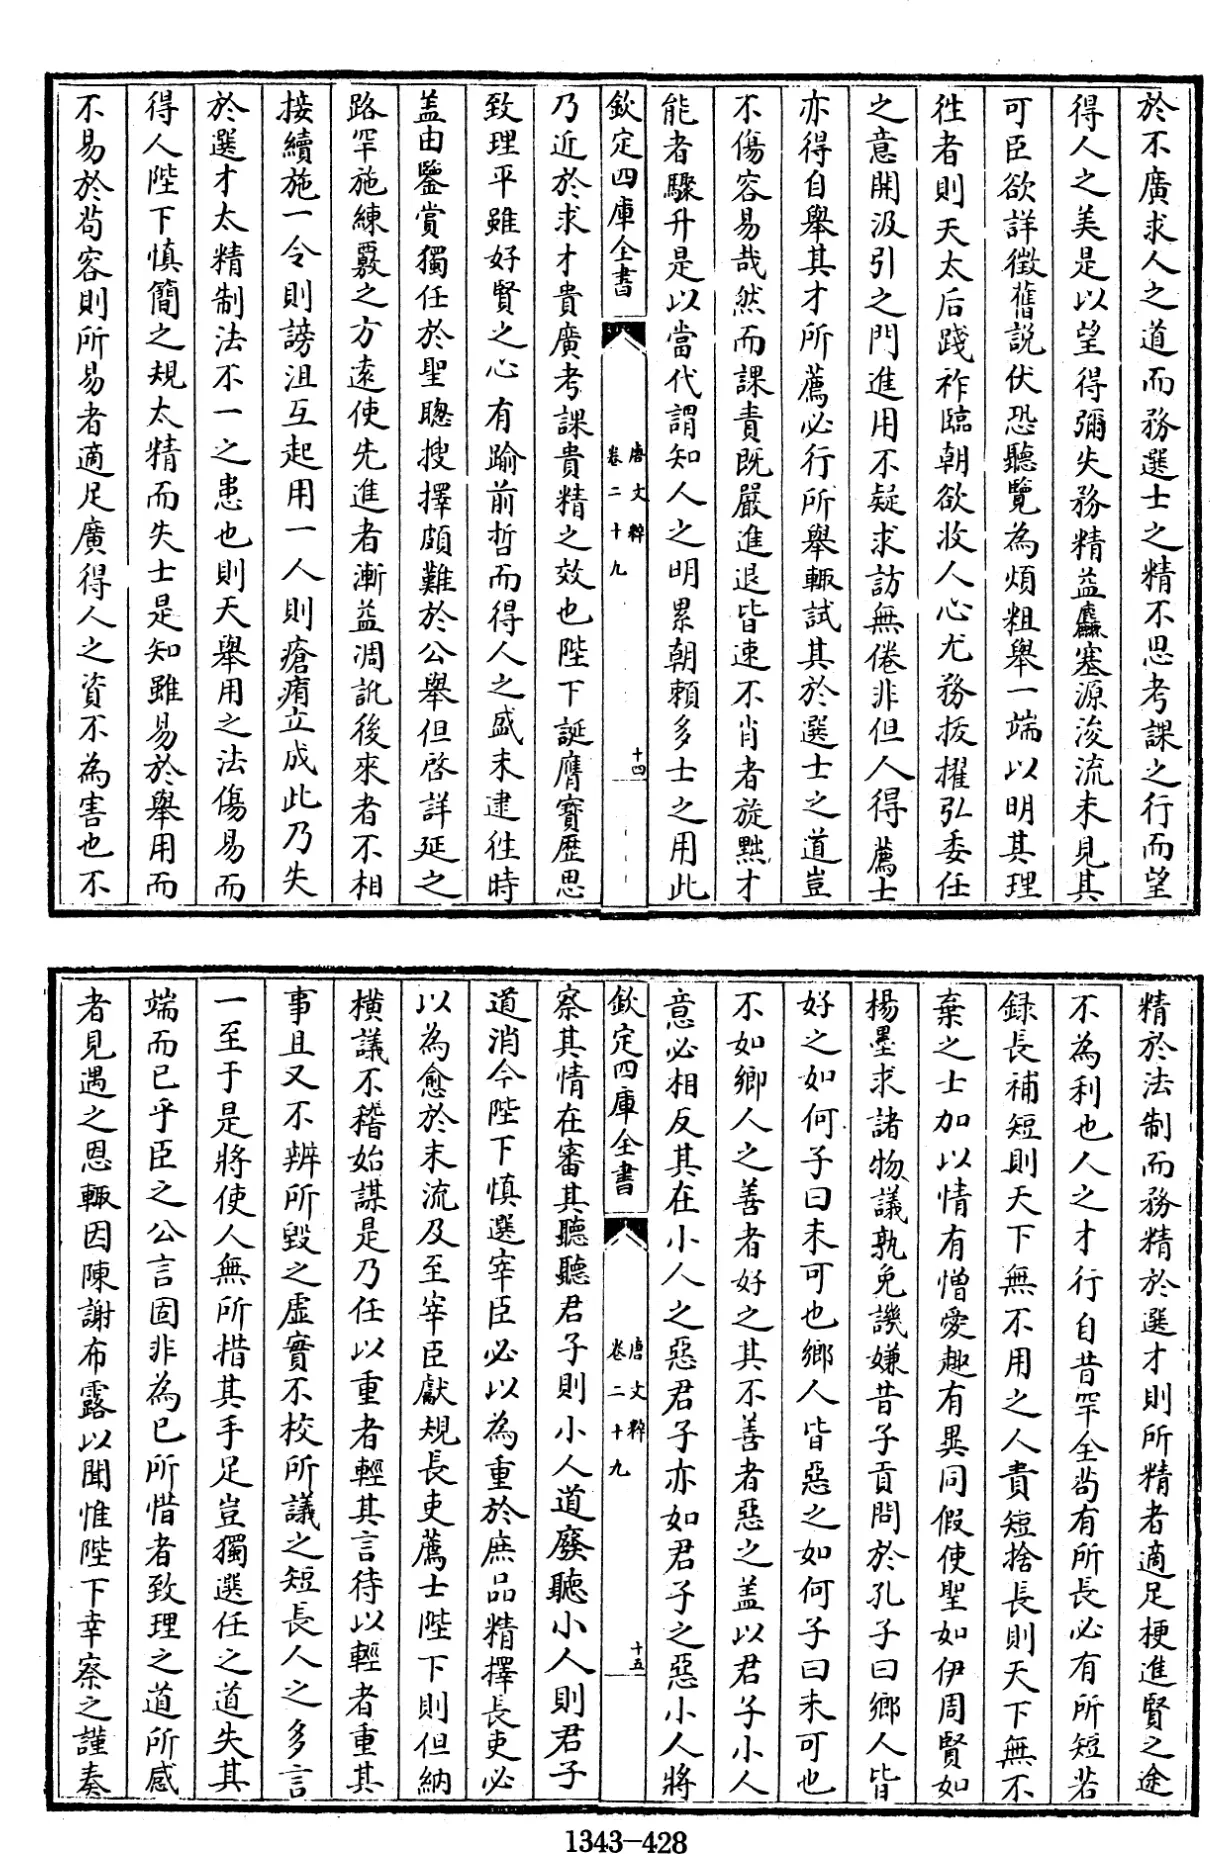 於不廣求人之道而務選士之精不思考課之行而望
得人之美是以望得彌失務精益麤塞源浚流未見其
可臣欲詳徵舊説伏恐聽覽為煩粗舉一端以明其理
徃者則天太后踐祚臨朝欲收人心尤務拔擢弘委任
之意開汲引之門進用不疑求訪無倦非但人得薦士
亦得自舉其才所薦必行所舉輙試其於選士之道豈
不傷容易哉然而課責既嚴進退皆速不肖者旋黜才
能者驟升是以當代謂知人之明累朝頼多士之用此
欽定四庫全書
唐文粹
卷二十九
十四
乃近於求才貴廣考課貴精之效也陛下誕膺寳歴思
致理平雖好賢之心有踰前哲而得人之盛未逮徃時
盖由鑒賞獨任於聖聰搜擇頗難於公舉但啓詳延之
路罕施練覈之方遂使先進者漸益凋訛後來者不相
接續施一令則謗沮互起用一人則瘡痏立成此乃失
於選才太精制法不一之患也則天舉用之法傷易而
得人陛下慎簡之規太精而失士是知雖易於舉用而
不易於苟容則所易者適足廣得人之資不為害也不
精於法制而務精於選才則所精者適足梗進賢之途
不為利也人之才行自昔罕全苟有所長必有所短若
録長補短則天下無不用之人責短捨長則天下無不
棄之士加以情有憎愛趣有異同假使聖如伊周賢如
楊墨求諸物議孰免譏嫌昔子貢問於孔子曰鄉人皆
好之如何子曰未可也鄉人皆惡之如何子曰未可也
不如鄉人之善者好之其不善者惡之盖以君子小人
意必相反其在小人之惡君子亦如君子之惡小人將
欽定四庫全書
唐文粹
卷二十九
十五
察其情在審其聽聽君子則小人道廢聽小人則君子
道消今陛下慎選宰臣必以為重於庶品精擇長吏必
以為愈於末流及至宰臣獻規長吏薦士陛下則但納
横議不稽始謀是乃任以重者輕其言待以輕者重其
事且又不辨所毀之虛實不校所議之短長人之多言
一至于是將使人無所措其手足豈獨選任之道失其
端而已乎臣之公言固非為已所惜者致理之道所感
者見遇之恩輙因陳謝布露以聞惟陛下幸察之謹奏
1343-428